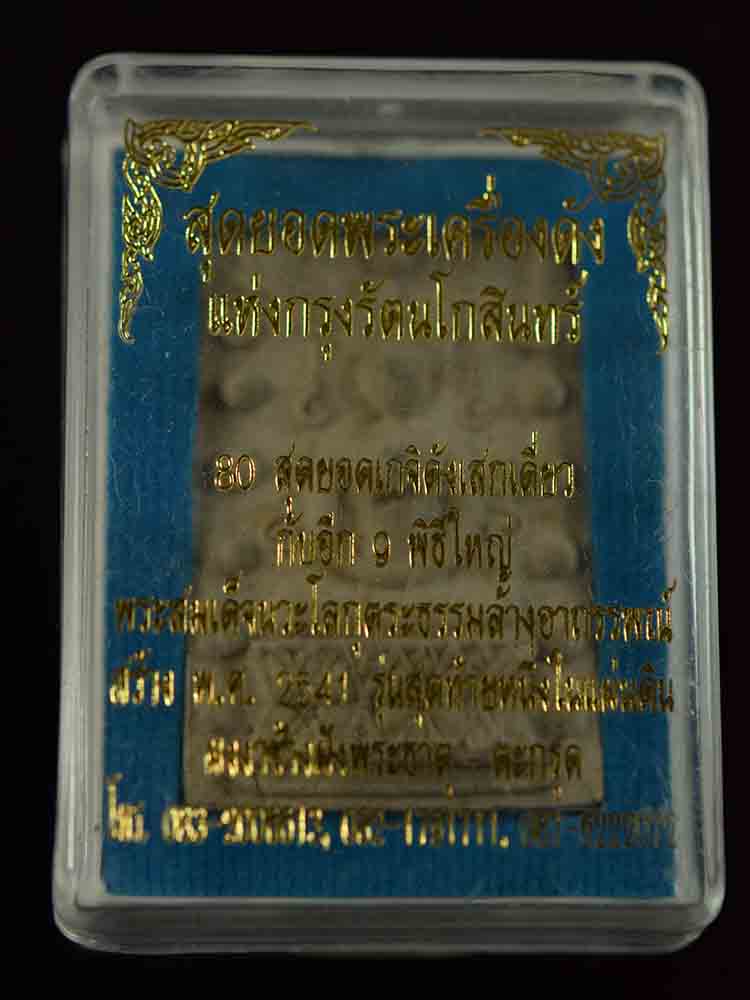 สุดยอดพระเครื่องดัง
แห่งกรุงรัตนโกสินทร์
80 สุดยอดเกจิดังเสกเดี่ยว
กับอีก 9 พิธีใหญ่
พระสมเด็จนวะโลกุตระธรรมล้างอาถรรพณ์
สร้าง พ.ศ. 2541 รุ่นสุดท้ายหนึ่งในแผ่นดิน
ฝังพระธาตุ ตะกรุด
โทร.